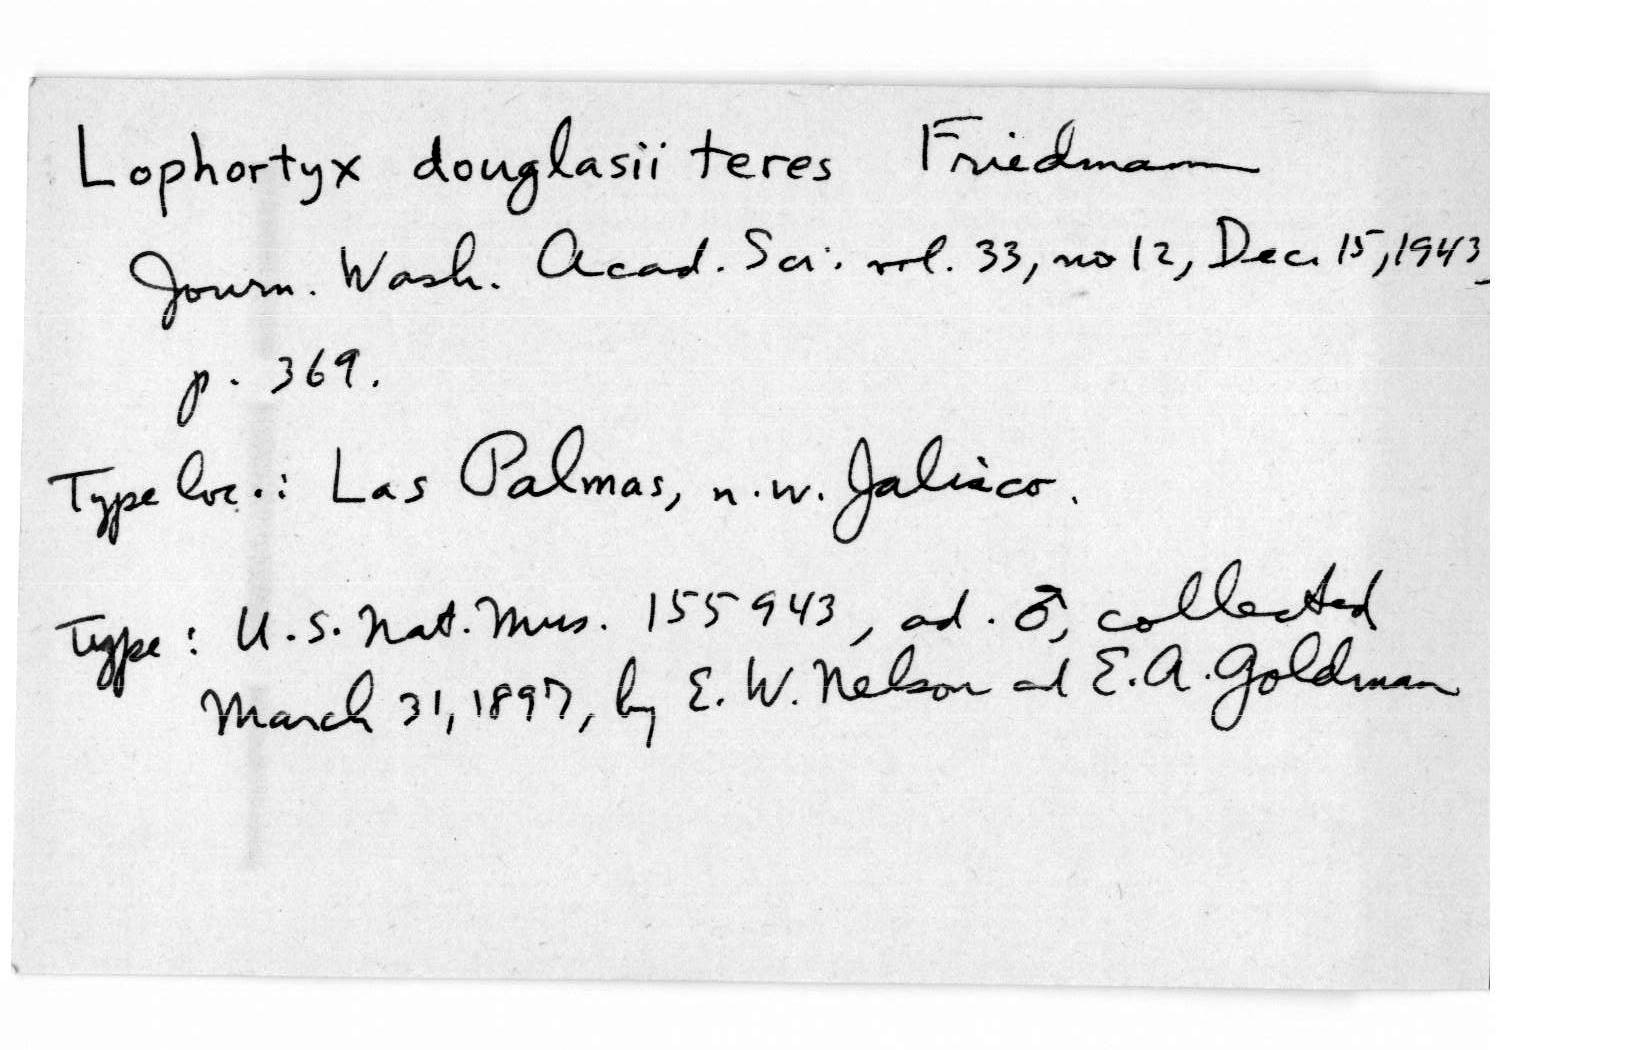 Lophortyx douglasii teres Friedmann
Journ. Wash. Acad. Sci. vol. 33, no 12, Dec. 15, 1943,
p. 369.
Type loc.: Las Palmas, n.w. Jalisco.
Type: U.S. Nat. Mus. 155943, ad. ♂, collected
March 31, 1897, by E. W. Nelson and E. A. Goldman